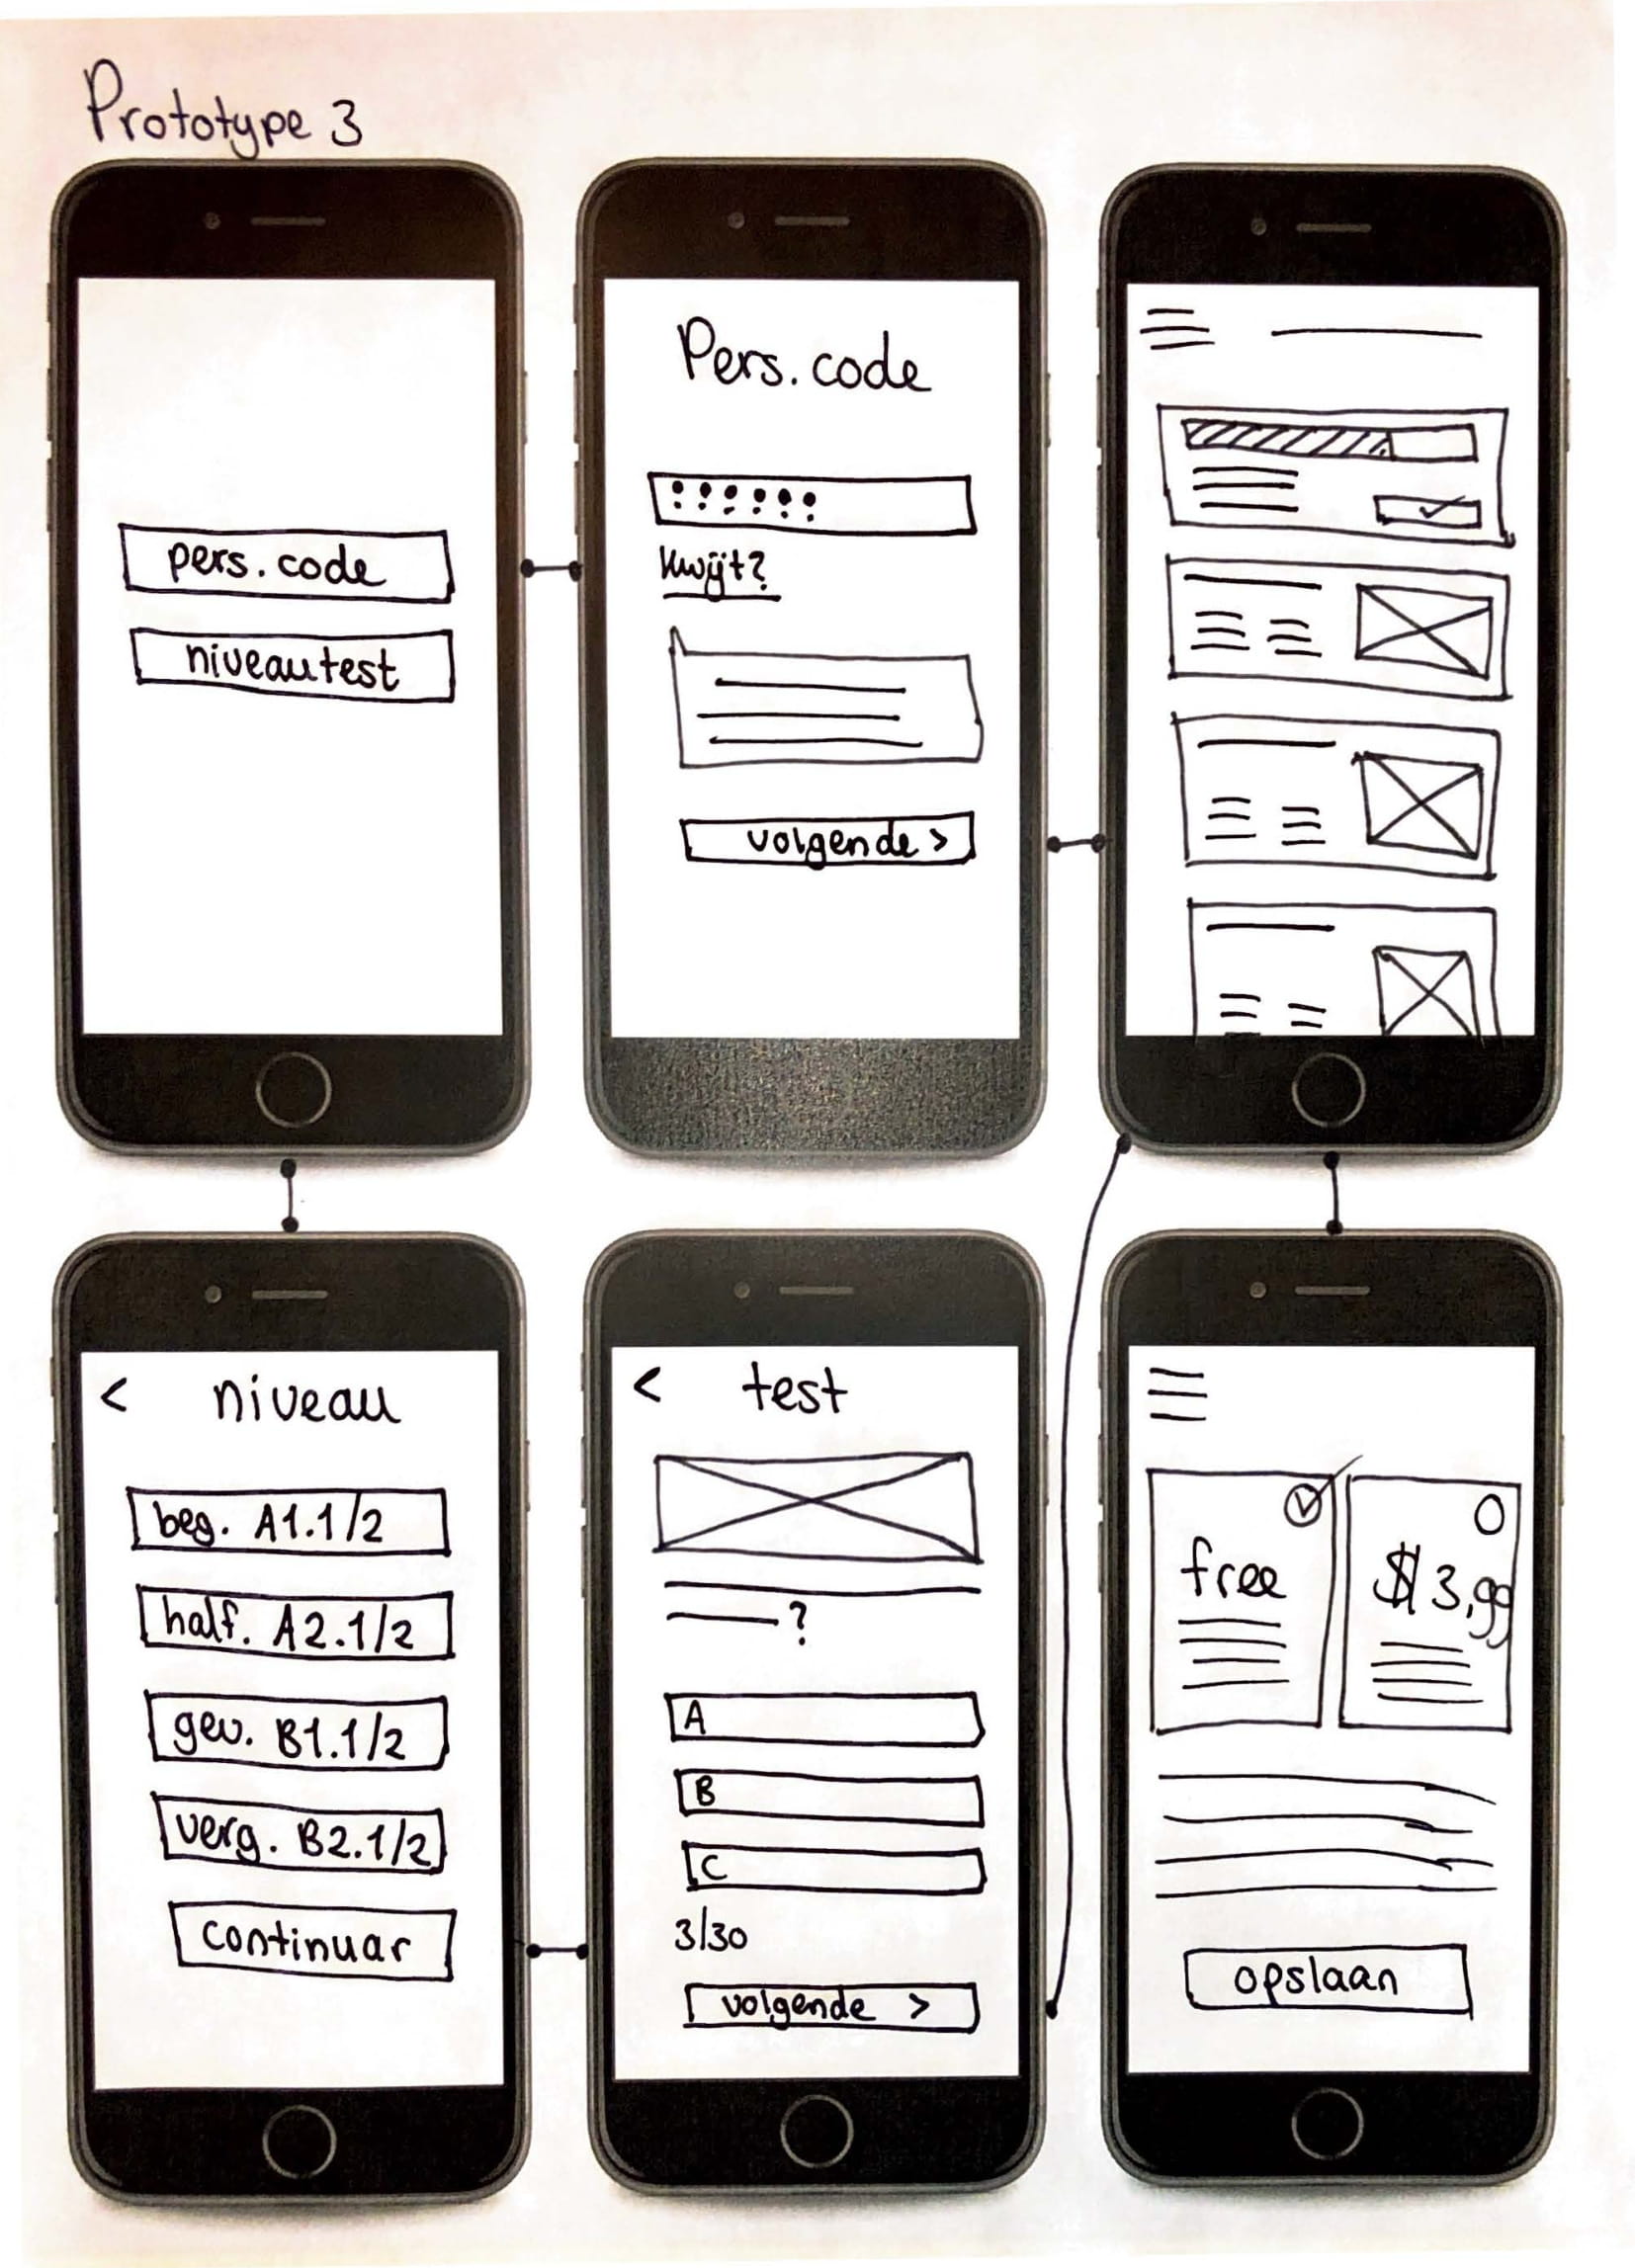 Prototype 3
pers. code
niveautest
Pers. code
kwijt?
volgende >
< niveau
beg. A1.1/2
half. A2.1/2
gev. B1.1/2
verg. B2.1/2
continuar
< test
?
A
B
C
3/30
volgende >
free
$3,99
opslaan